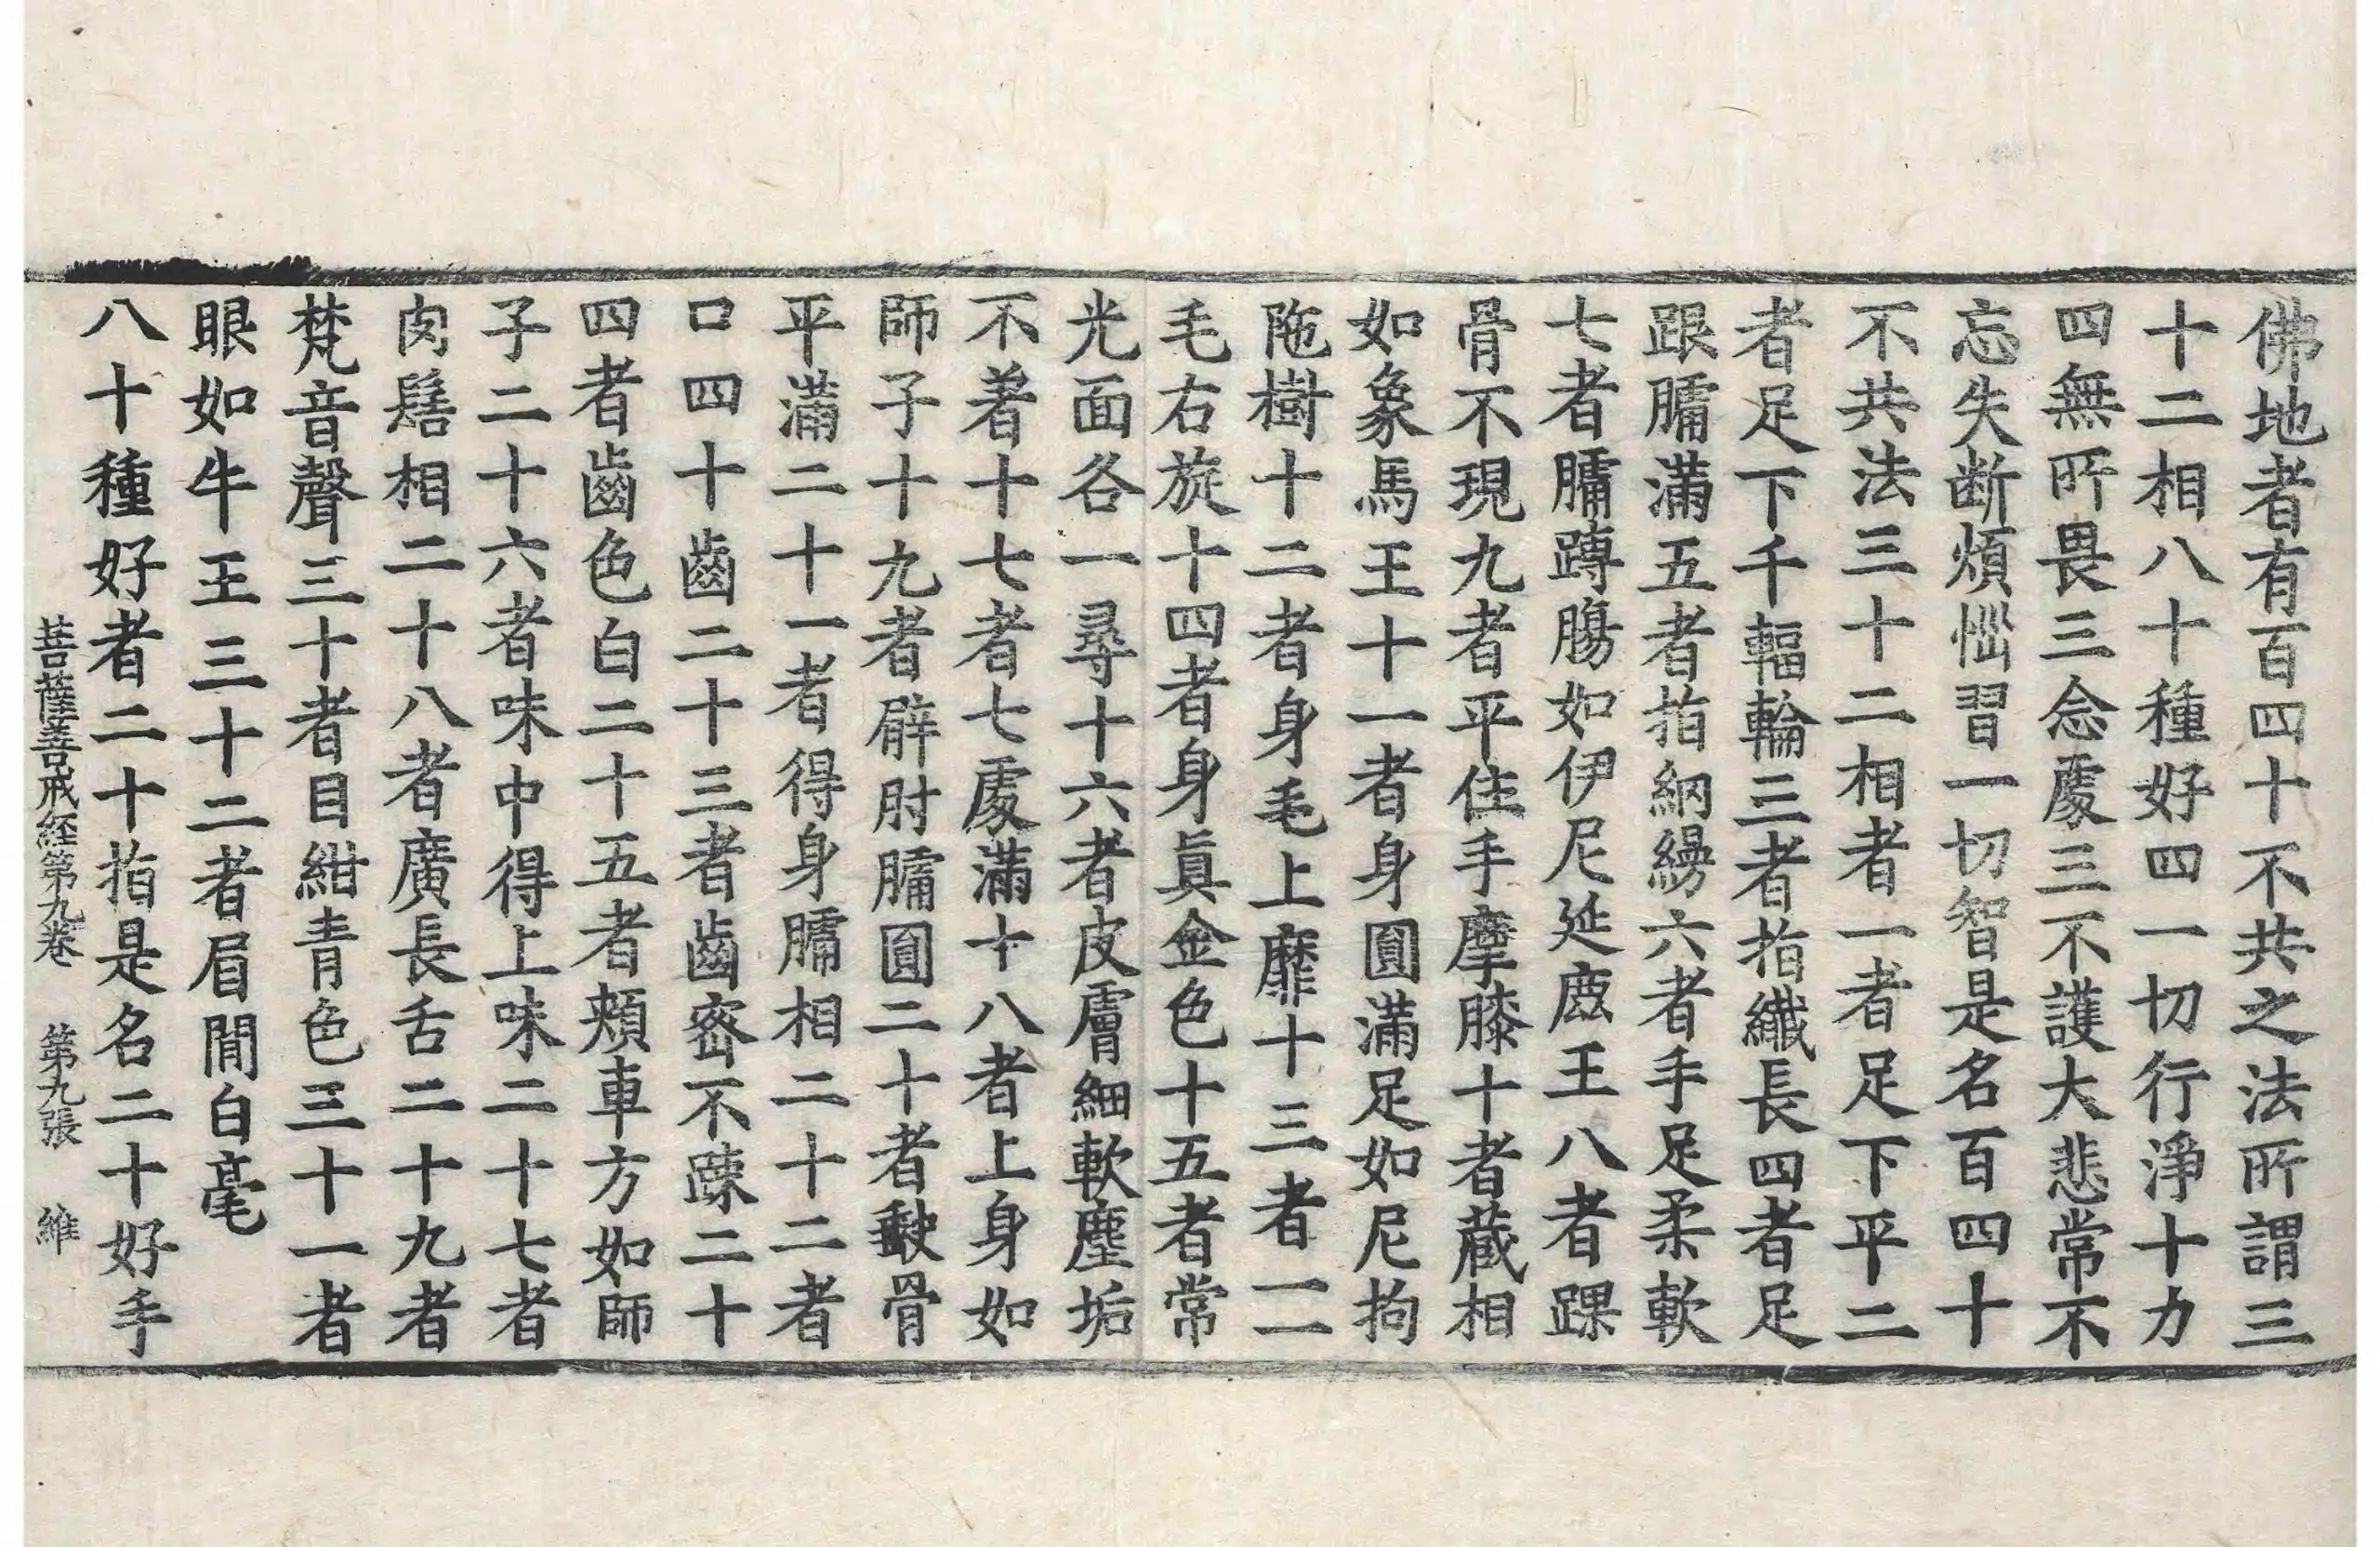 佛地者有百四十不共之法所謂三
十二相八十種好四一切行淨十力
四無所畏三念處三不護大悲常不
忘失断煩惱習一切智是名百四十
不共法三十二相者一者足下平二
者足下千輻輪三者指纖長四者足
跟𦟛滿五者指網縵六者手足柔軟
七者𦟛蹲膓如伊尼延鹿王八者踝
骨不現九者平住手摩膝十者蔵相
如象馬王十一者身圓滿足如尼拘
陁樹十二者身毛上靡十三者一一
毛右旋十四者身真金色十五者常
光面各一尋十六者皮膚細軟塵垢
不著十七者七處滿十八者上身如
師子十九者臂肘𦟛圓二十者䯋骨
平滿二十一者得身𦟛相二十二者
口四十齒二十三者齒宻不踈二十
四者齒色白二十五者頬車方如師
子二十六者味中得上味二十七者
肉髻相二十八者廣長舌二十九者
梵音聲三十者目紺青色三十一者
眼如牛王三十二者眉間白毫
八十種好者二十指是名二十好手
菩薩善戒経第九卷 第九張 維